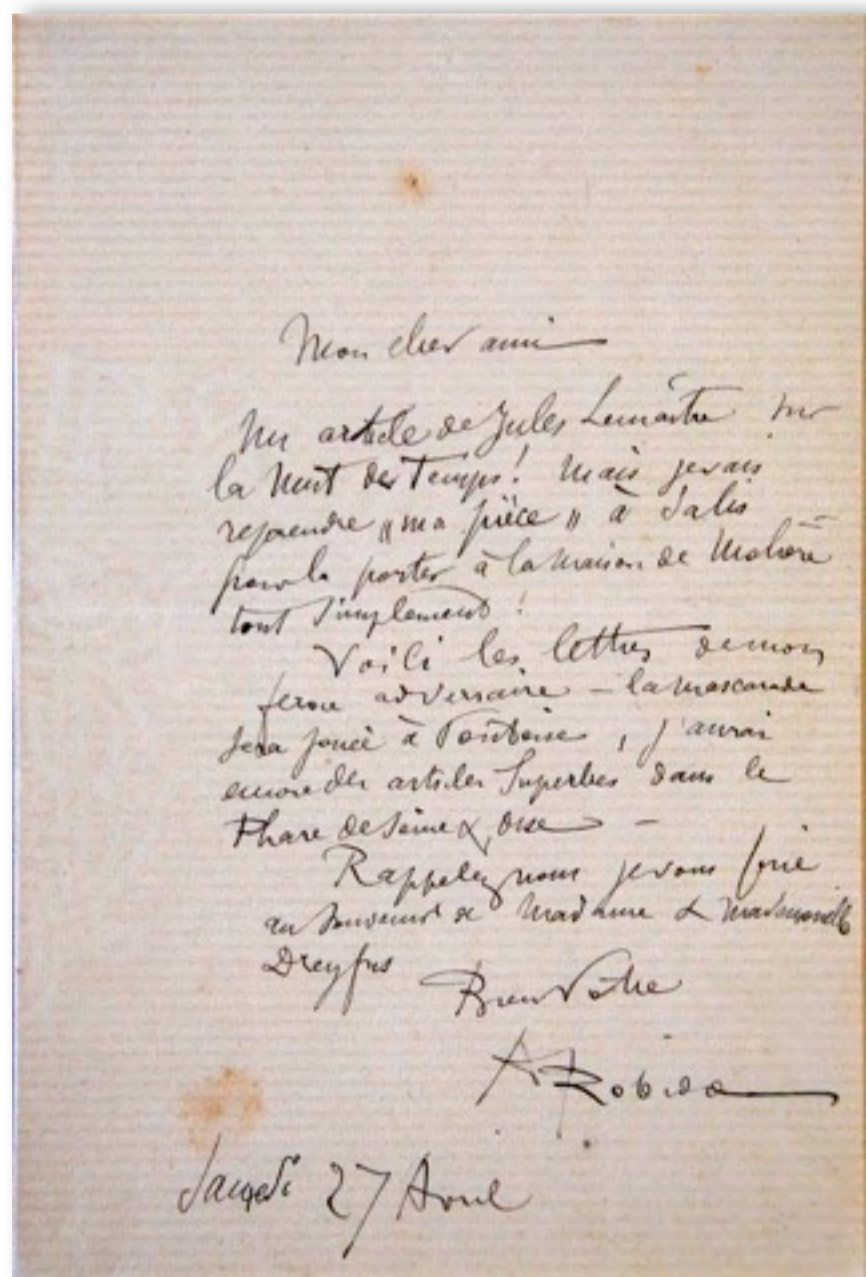 Mon cher ami
Un article de Jules Lemaître sur
la Nuit des Temps! Mais je vais
reprendre „ma pièce„ à Salis
pour la porter à la maison de Molière
tout simplement!
Voilà les lettres de mon
adversaire – la mascarade
sera jouée à Pontoise, j'aurai
encore des articles superbes dans le
Phare de Seine & Oise –
Rappelez nous je vous prie
au souvenir de Madame & Mademoiselle
Dreyfus
Bien Votre
A. Robida
Samedi 27 Avril